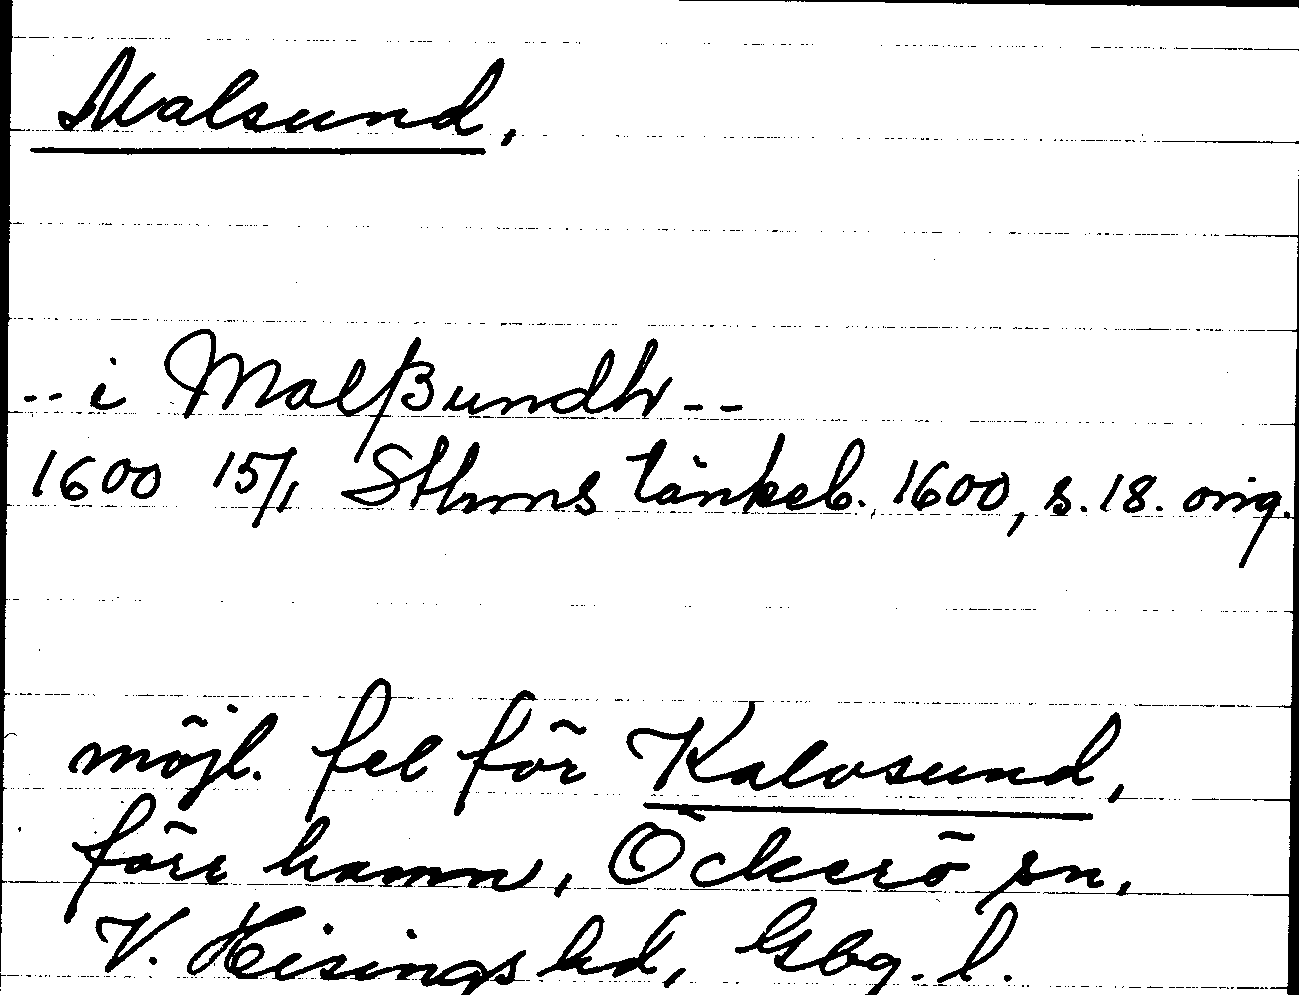 Malsund,
-- i Malßundh --
1600 15/1 Sthms tänkeb. 1600, s. 18. orig.
möjl. fel för Kalvsund,
förr hamn, Öckerö sn,
V. Hisings hd, Gbg. l.